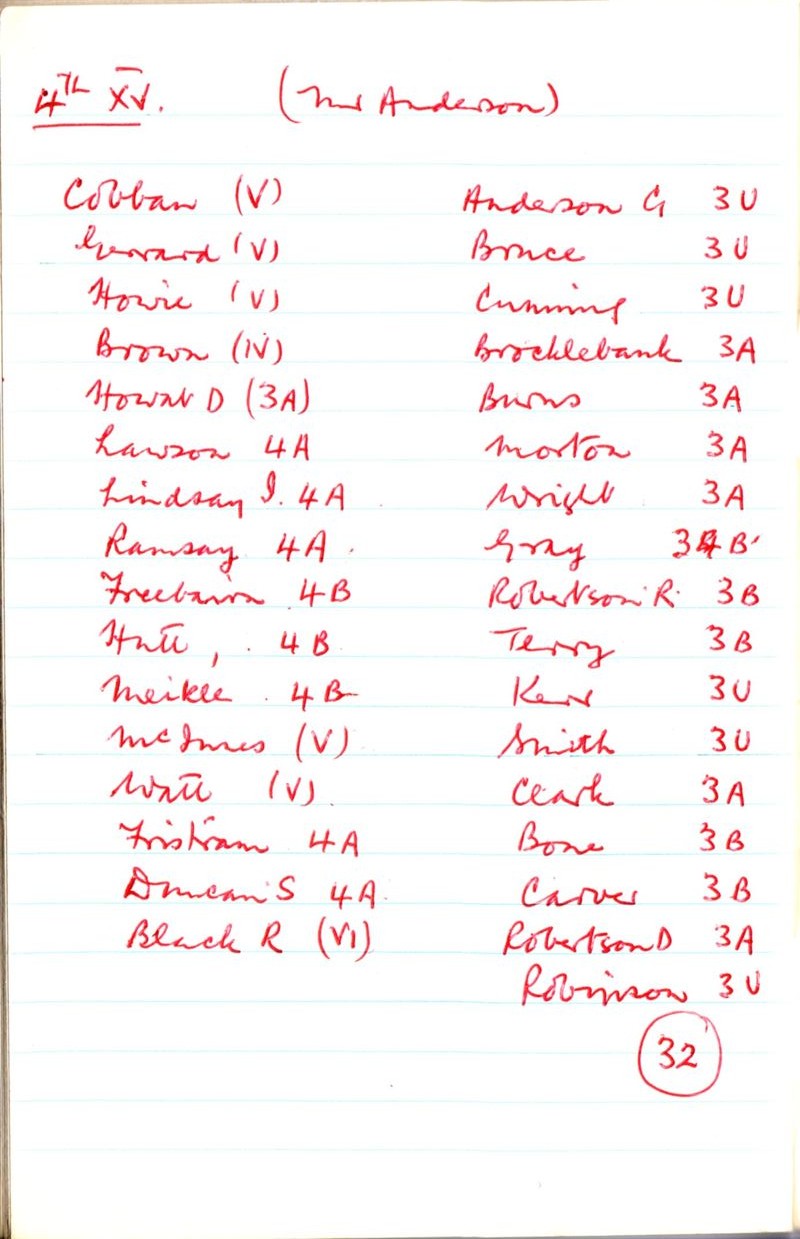 4TH XV. (Mr Anderson)
Cobban (V) Anderson G 3U
Gerrard (V) Bruce 3U
Howie (V) Cumming 3U
Brown (IV) Brocklebank 3A
Howat D (3A) Burns 3A
Lawson 4A Morton 3A
Lindsay I. 4A Wright 3A
Ramsay 4A. Gray 3B
Freebairn 4B Robertson R. 3B
Hutt, 4B Terry 3B
Meikle 4B Kerr 3U
McInnes (V) Smith 3U
Watt (V) Clark 3A
Tristram 4A Bone 3B
Duncan S 4A Carver 3B
Black R (VI) Robertson D 3A
Robinson 3U
32